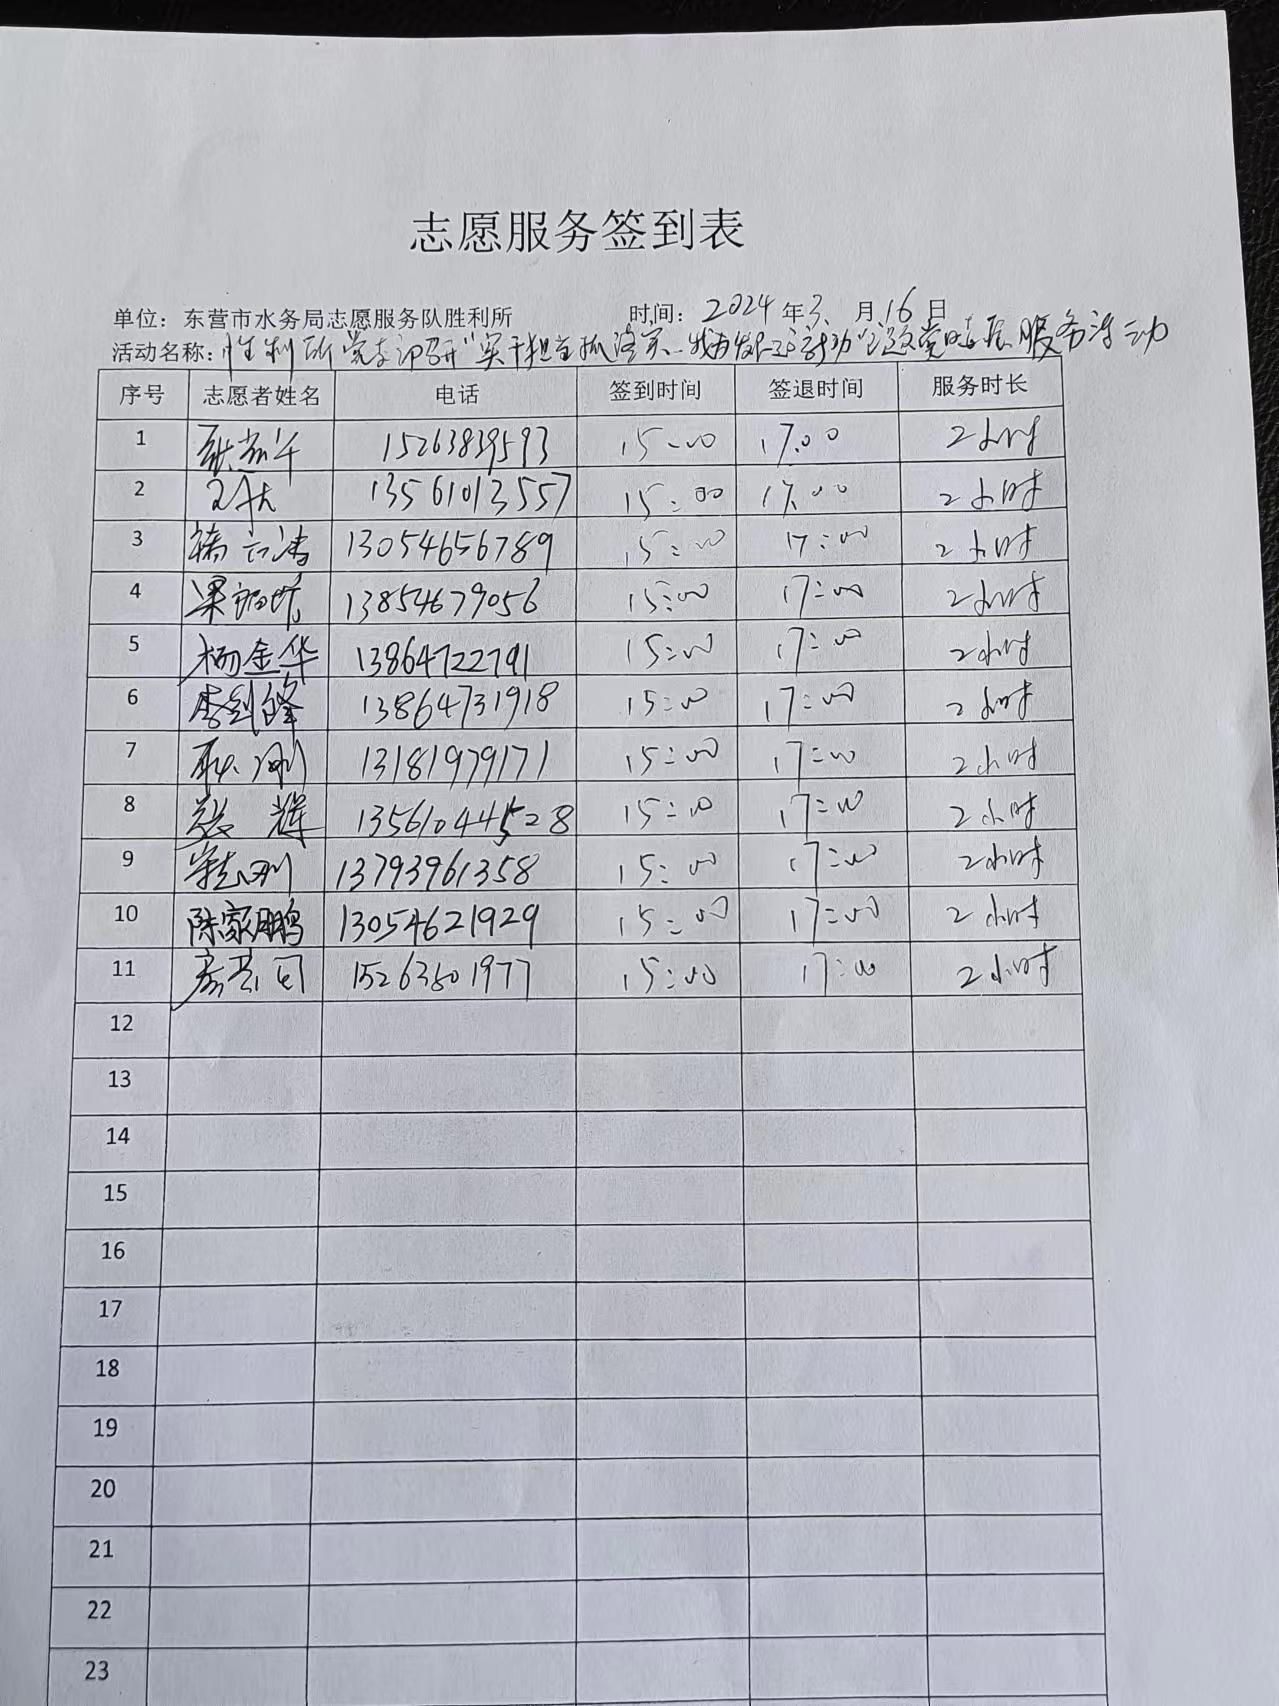 志愿服务签到表
单位：东营市水务局志愿服务队胜利所 时间：2024年3、月16日
活动名称：胜利所党支部召开"实干担当抓落实、我为发展 主题党日 服务活动
序号 志愿者姓名 电话 签到时间 签退时间 服务时长
1 15263839593 15:00 17:00 2小时
2 13561013557 15:00 17:00 2小时
3 13054656789 15:00 17:00 2小时
4 13854679056 15:00 17:00 2小时
5 杨金华 13864722791 15:00 17:00 2小时
6 李剑锋 13864731918 15:00 17:00 2小时
7 耿刚 13181979171 15:00 17:00 2小时
8 张辉 13561044528 15:00 17:00 2小时
9 宋志刚 13793961358 15:00 17:00 2小时
10 陈家鹏 13054621929 15:00 17:00 2小时
11 15263801977 15:00 17:00 2小时
12
13
14
15
16
17
18
19
20
21
22
23